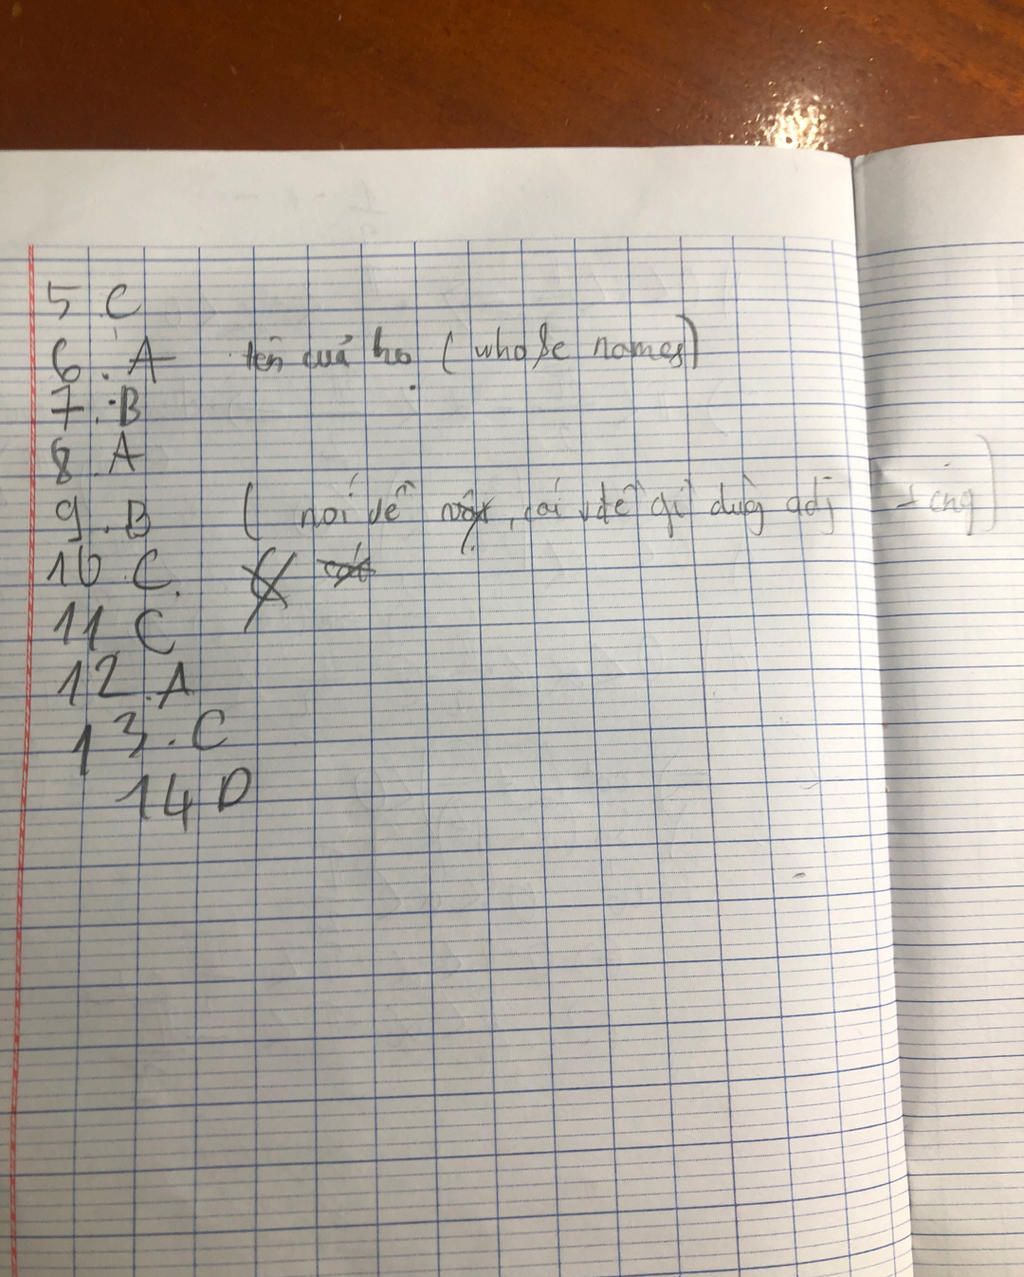 5 C
6. A tên củả họ (whose names)
7. B
8. A
9. B ( nói về vật, cái gì dùng adj - ing)
10 C.
11 C
12. A
13. C
14 D